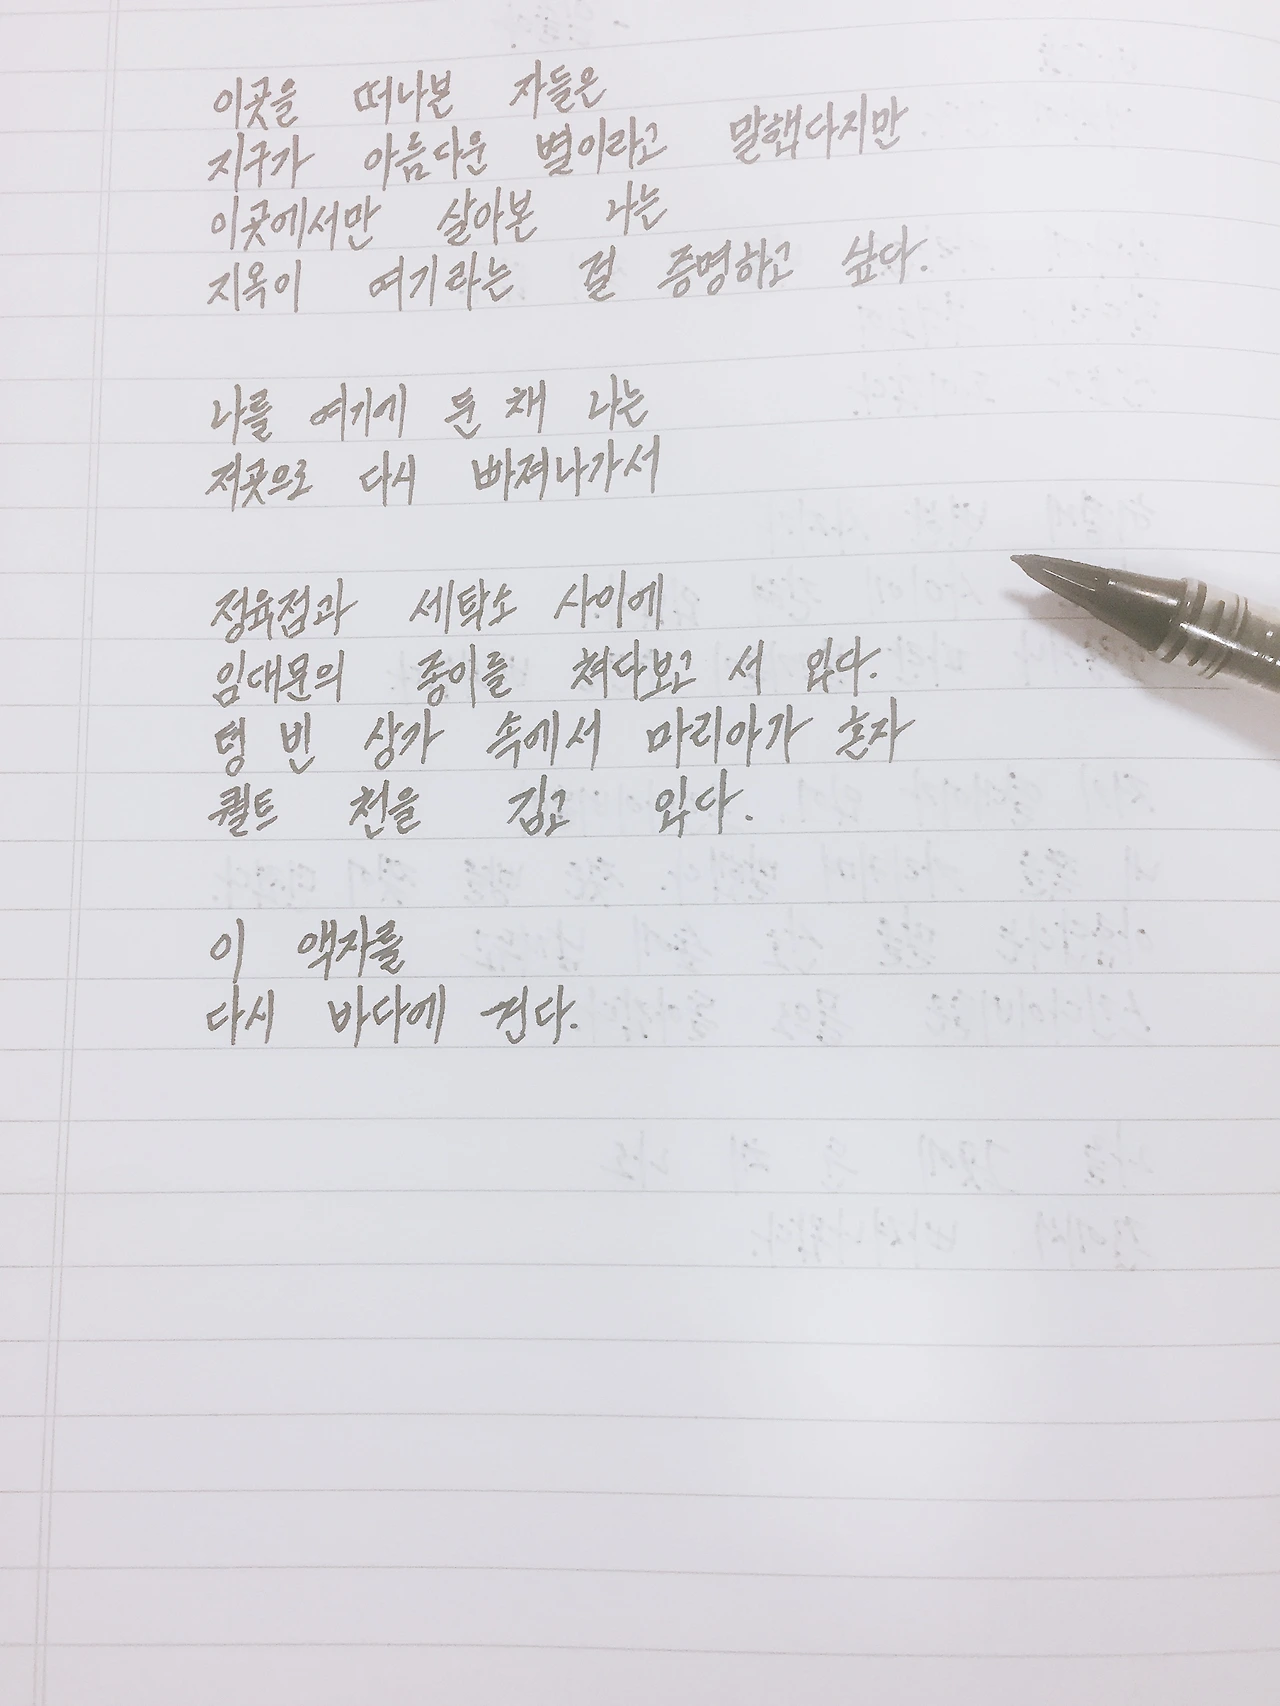 이곳을 떠나본 자들은
지구가 아름다운 별이라고 말했다지만
이곳에서만 살아본 나는
지옥이 여기라는 걸 증명하고 싶다.
나를 여기에 둔 채 나는
저곳으로 다시 빠져나가서
정육점과 세탁소 사이에
임대문의 종이를 쳐다보고 서 있다.
텅 빈 상가 속에서 마리아가 혼자
퀼트 천을 깁고 있다.
이 액자를
다시 바다에 건다.